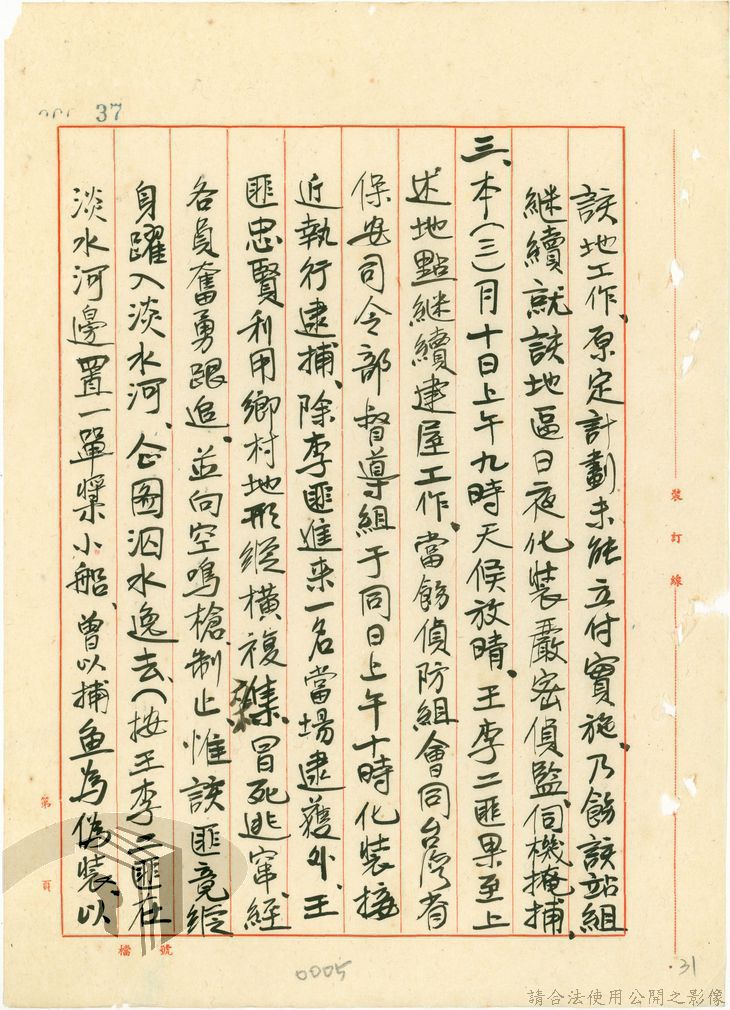 37
該地工作、原定計劃未能立付實施、乃飭該站組
継續就該地區日夜化裝嚴密偵監伺機掩捕、
三、本(三)月十日上午九時天候放晴、王李二匪果至上
述地點継續建屋工作、當飭偵防組會同台湾省
保安司令部督導組于同日上午十時化裝接
近執行逮捕、除李匪進来一名當場逮獲外、王
匪忠賢利用鄉村地形縱橫複雜冒死逃竄、經
各員奮勇跟追、並向空鳴槍制止惟該匪竟縱
身躍入淡水河、企圖泅水逸去、(按王李二匪在
淡水河邊置一單槳小船、曾以捕鱼為偽裝、以
裝訂線
第 頁
檔 號
0005
31
請合法使用公開之影像